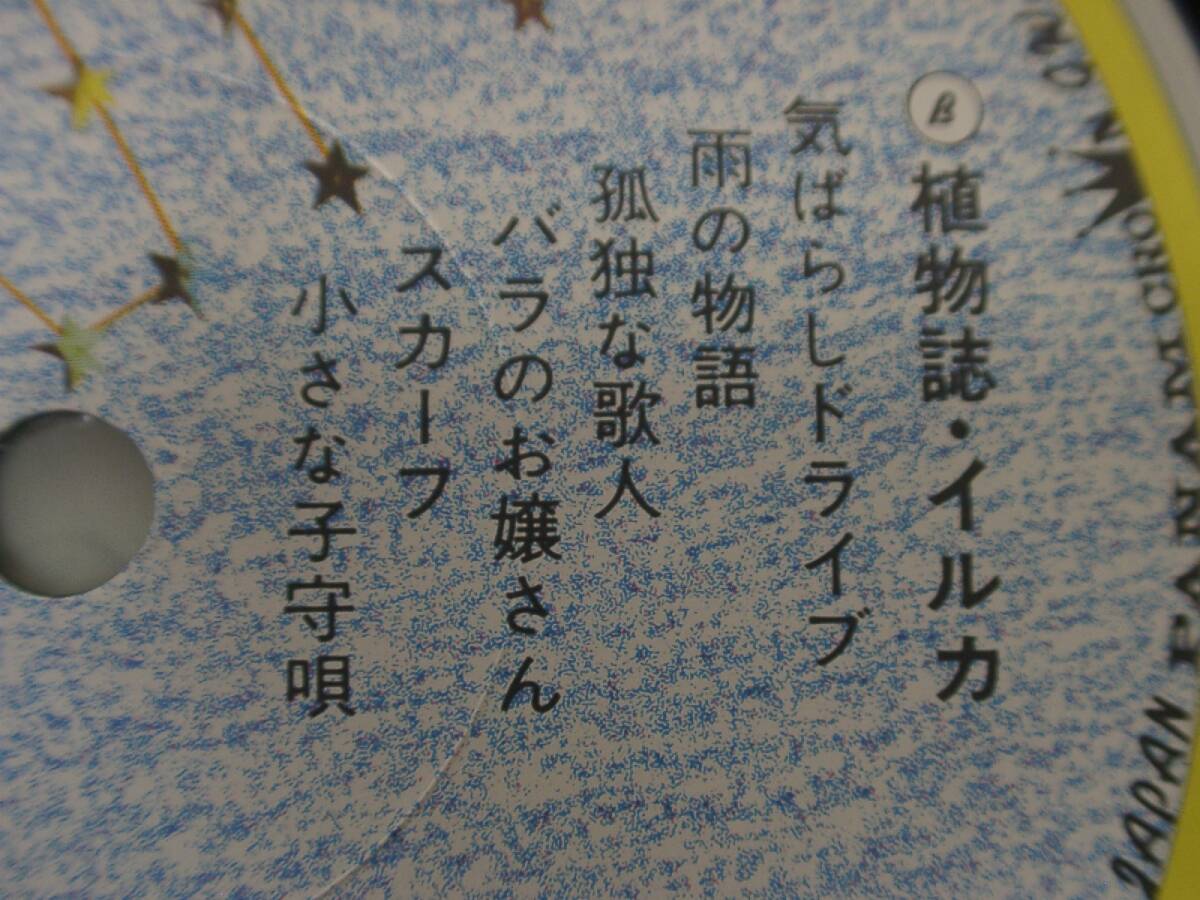 B
植物誌・イルカ
気ばらしドライブ
雨の物語
孤独な歌人
バラのお嬢さん
スカーフ
小さな子守唄
JAPAN PANAM CRO